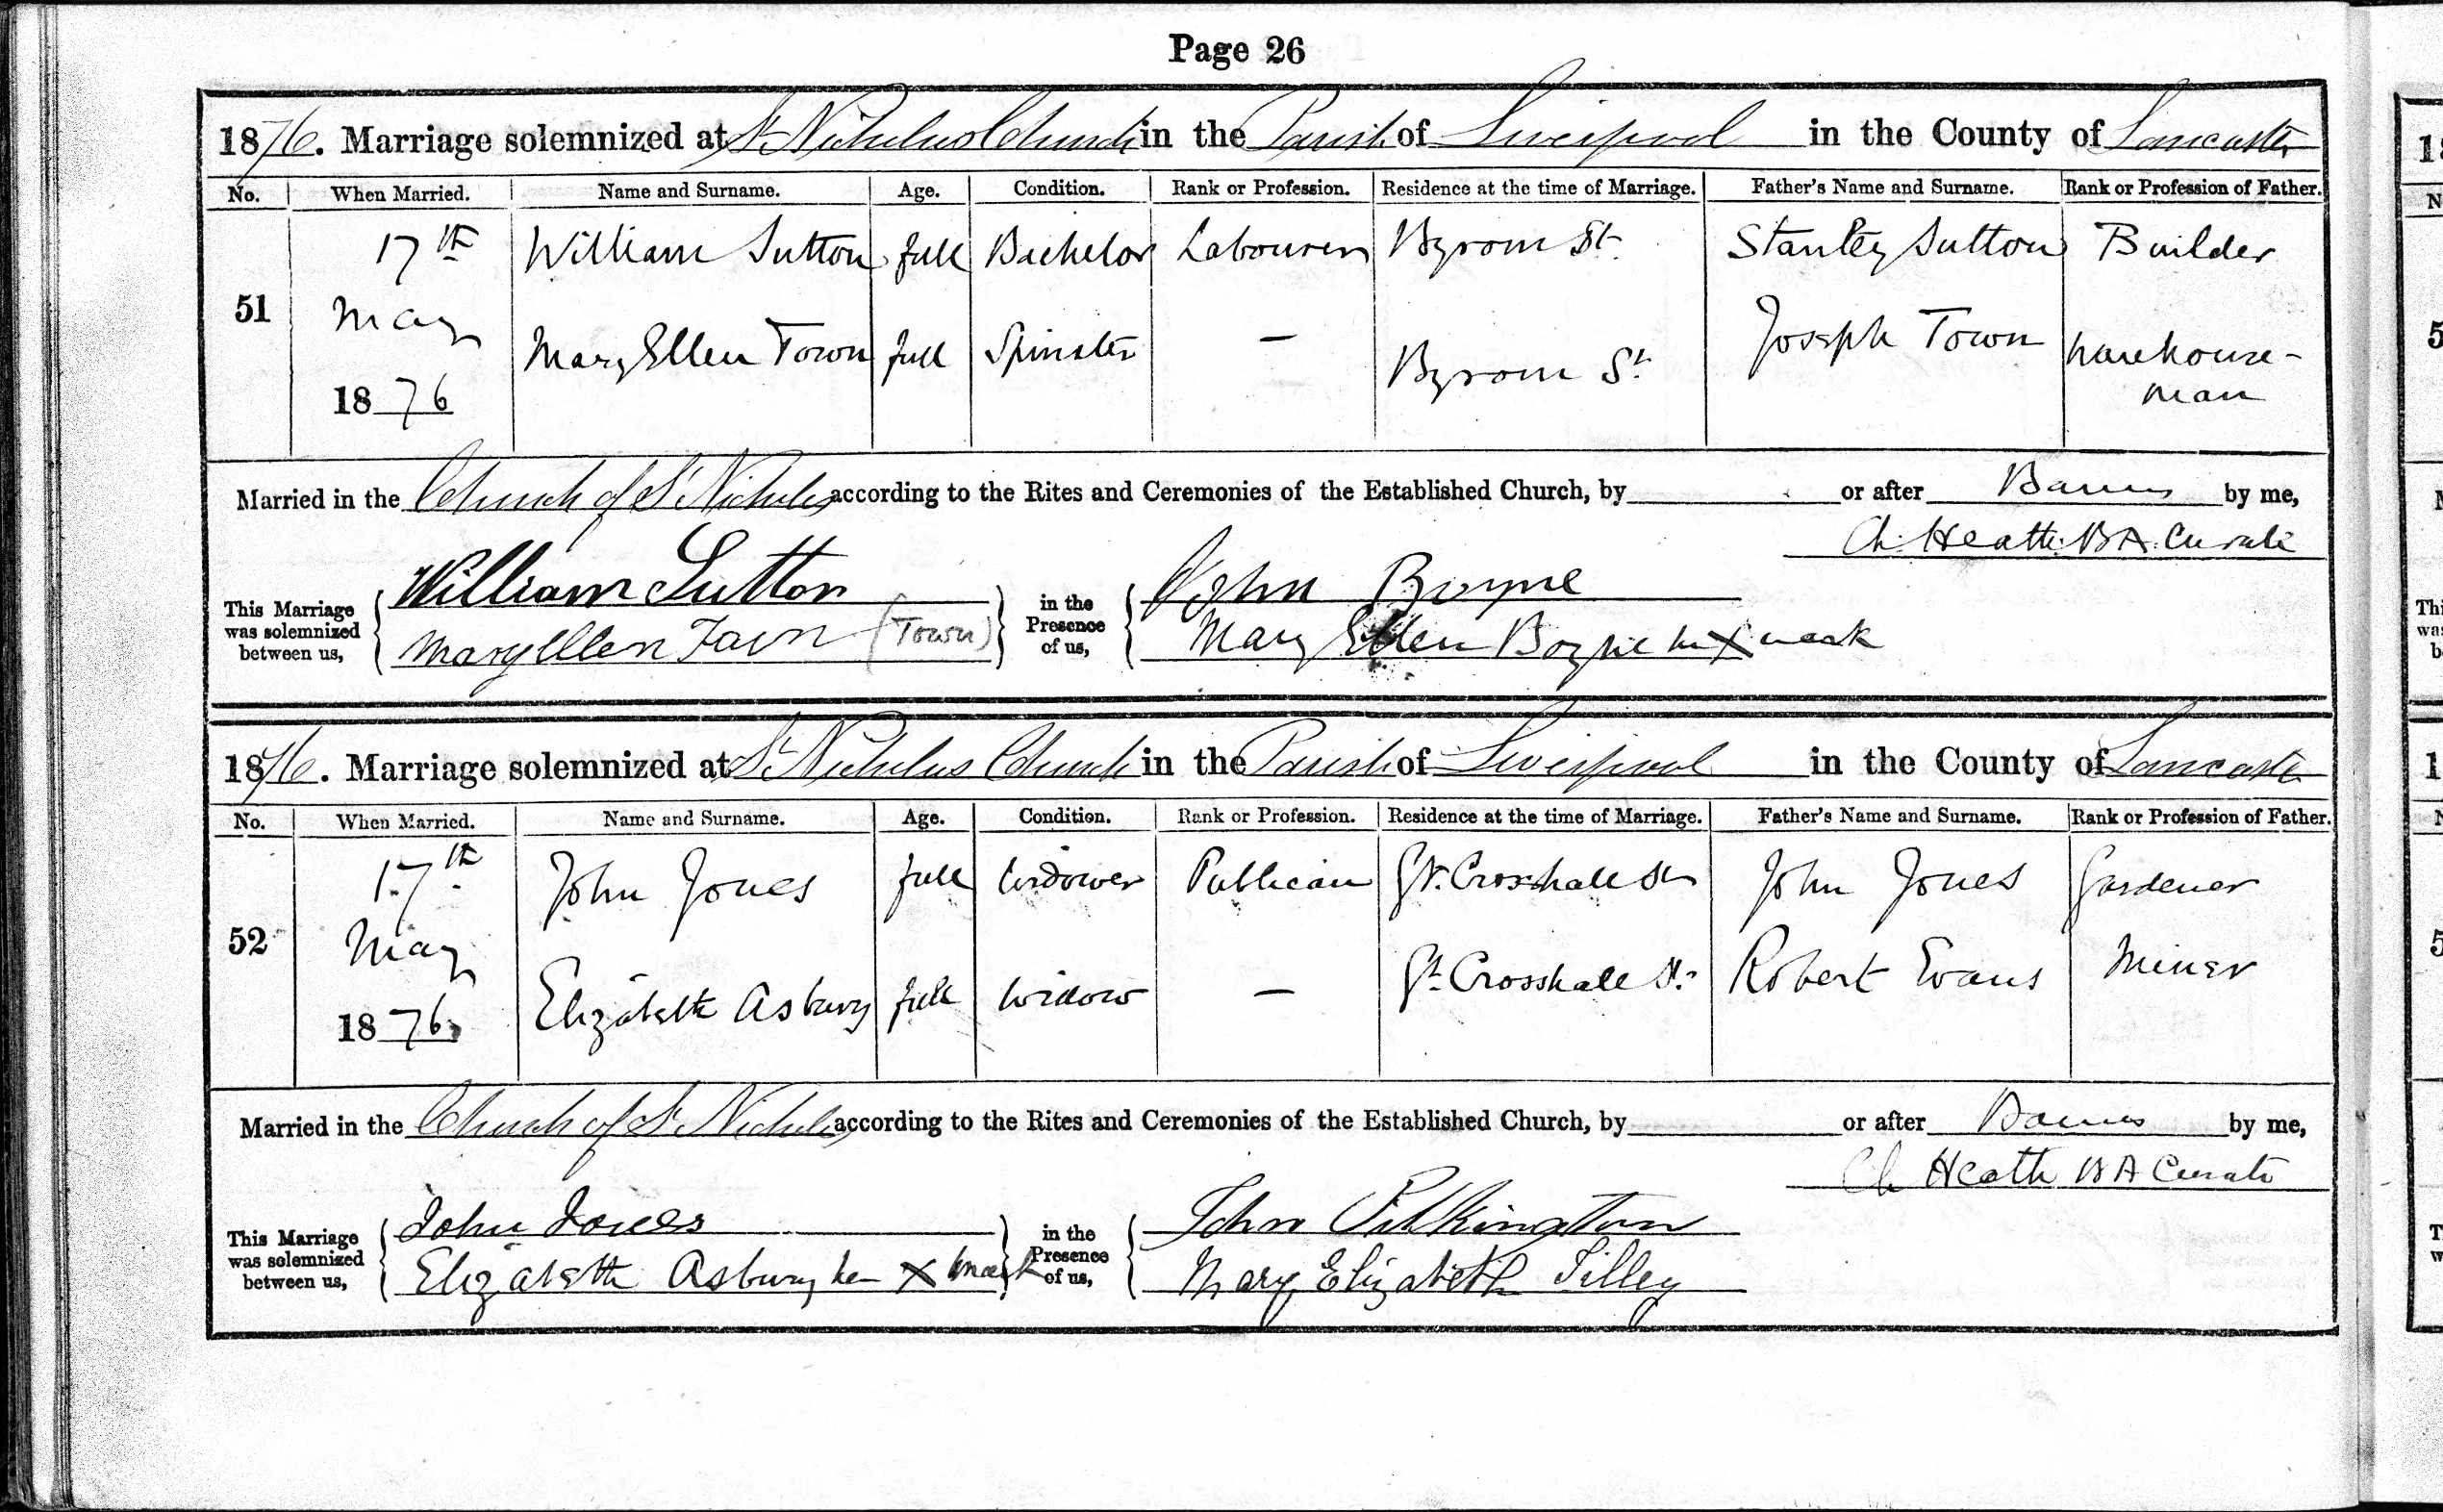 Page 26
1876. Marriage solemnized at St Nicholas Church in the Parish of Liverpool in the County of Lancaster
No. When Married. Name and Surname. Age. Condition. Rank or Profession. Residence at the time of Marriage. Father's Name and Surname. Rank or Profession of Father.
17th William Sutton full Bachelor Labourer Byrom St. Stanley Sutton Builder
51 May Mary Ellen Town full Spinster — Byrom St. Joseph Town Warehouse-
1876 man
Married in the Church of St Nicholas according to the Rites and Ceremonies of the Established Church, by or after Banns by me,
Ch. Heath BA. Curate
This Marriage was solemnized between us,
William Sutton
Mary Ellen Town (Town)
in the Presence of us,
John Boyne
Mary Ellen Boyne her X mark
1876. Marriage solemnized at St Nicholas Church in the Parish of Liverpool in the County of Lancaster
No. When Married. Name and Surname. Age. Condition. Rank or Profession. Residence at the time of Marriage. Father's Name and Surname. Rank or Profession of Father.
17th John Jones full Widower Publican Gt. Crosshall St. John Jones Gardener
52 May Elizabeth Asbury full Widow — Gt. Crosshall St. Robert Evans Miner
1876
Married in the Church of St Nicholas according to the Rites and Ceremonies of the Established Church, by or after Banns by me,
Ch Heath BA Curate
This Marriage was solemnized between us,
John Jones
Elizabeth Asbury her X mark
in the Presence of us,
John Pilkington
Mary Elizabeth Tilley